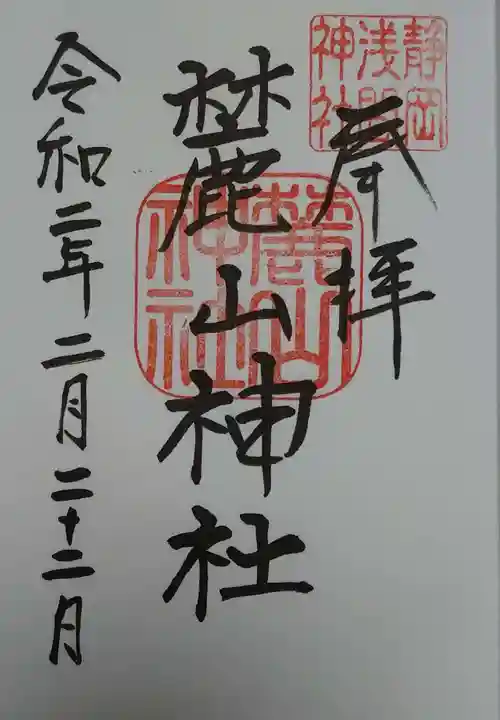 奉拝
静岡
浅間
神社
麓山神社
麓山
神社
令和二年二月二十二月